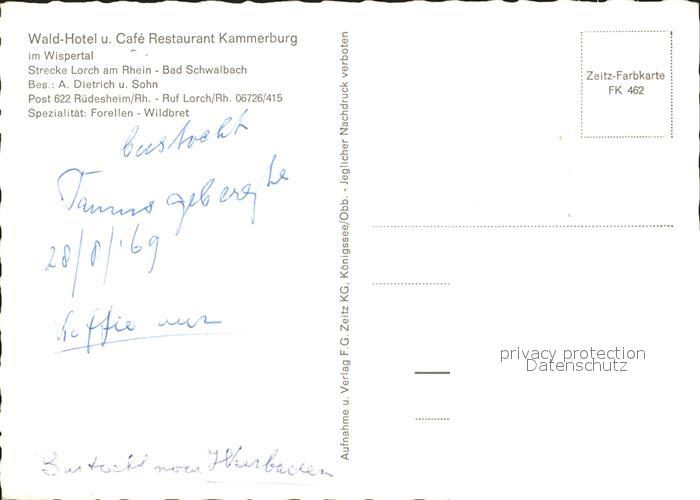 Wald-Hotel u. Café Restaurant Kammerburg
im Wispertal
Strecke Lorch am Rhein - Bad Schwalbach
Bes.: A. Dietrich u. Sohn
Post 622 Rüdesheim/Rh. - Ruf Lorch/Rh. 06726/415
Spezialität: Forellen - Wildbret
bustocht
Taunus gebergte
28/8/'69
Koffie uur
Bustocht naar Wiesbaden
Aufnahme u. Verlag F.G. Zeitz KG, Königssee/Obb. - Jeglicher Nachdruck verboten
Zeitz-Farbkarte
FK 462
privacy protection
Datenschutz